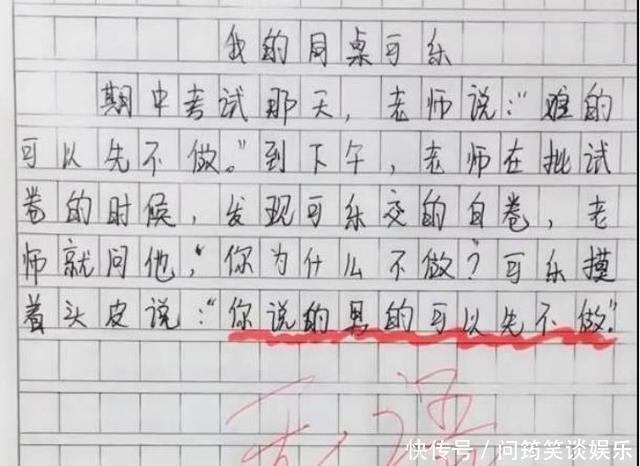 我的同桌可乐
期中考试那天，老师说：“难的
可以先不做。”到下午，老师在批试
卷的时候，发现可乐交的白卷，老
师就问他，“你为什么不做？可乐摸
着头皮说：“你说的男的可以先不做”
快传号／问筠笑谈娱乐